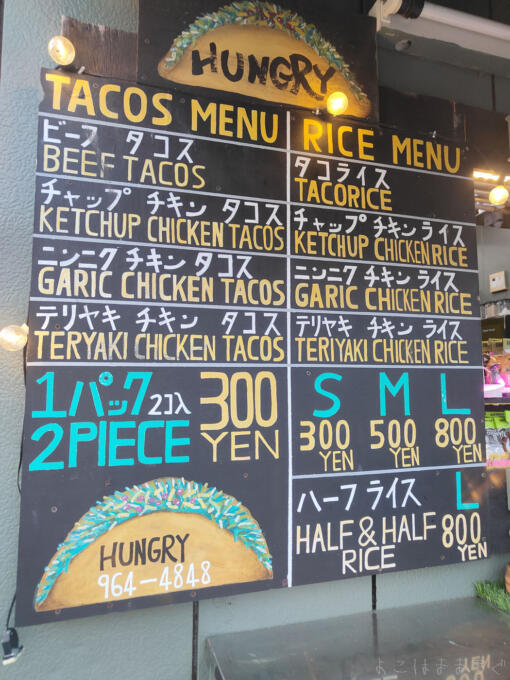 HUNGRY
TACOS MENU
ビーフ タコス
BEEF TACOS
チャップ チキン タコス
KETCHUP CHICKEN TACOS
ニンニク チキン タコス
GARIC CHICKEN TACOS
テリヤキ チキン タコス
TERYAKI CHICKEN TACOS
1パック 2コ入 300
2PIECE YEN
HUNGRY
964-4848
RICE MENU
タコライス
TACORICE
チャップ チキン ライス
KETCHUP CHICKEN RICE
ニンニク チキン ライス
GARIC CHICKEN RICE
テリヤキ チキン ライス
TERIYAKI CHICKEN RICE
S M L
300 500 800
YEN YEN YEN
ハーフ ライス L
HALF & HALF 800
RICE YEN